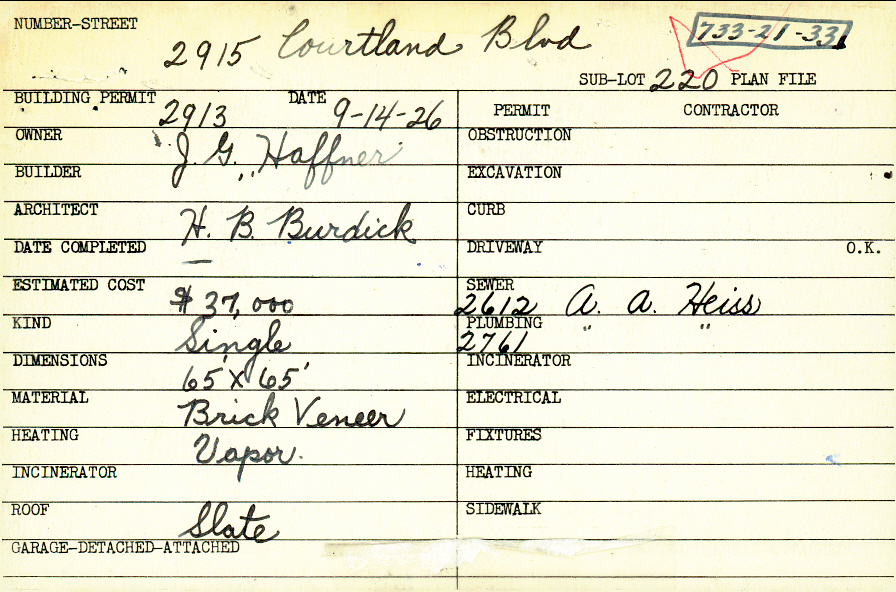 NUMBER-STREET
2915 Courtland Blvd
733-21-33
SUB-LOT 220 PLAN FILE
BUILDING PERMIT 2913 DATE 9-14-26
OWNER J. G. Haffner
BUILDER "
ARCHITECT H. B. Burdick
DATE COMPLETED —
ESTIMATED COST $37,000
KIND Single
DIMENSIONS 65' X 65'
MATERIAL Brick Veneer
HEATING Vapor.
INCINERATOR
ROOF Slate
GARAGE-DETACHED-ATTACHED
PERMIT CONTRACTOR
OBSTRUCTION
EXCAVATION
CURB
DRIVEWAY O.K.
SEWER 2612 A. A. Heiss
PLUMBING 2761 " "
INCINERATOR
ELECTRICAL
FIXTURES
HEATING
SIDEWALK